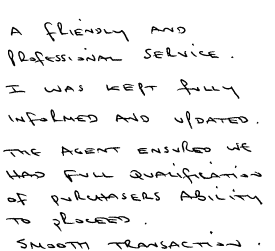 A FRIENDLY AND
PROFESSIONAL SERVICE.
I WAS KEPT FULLY
INFORMED AND UPDATED.
THE AGENT ENSURED WE
HAD FULL QUALIFICATION
OF PURCHASERS ABILITY
TO PROCEED.
SMOOTH TRANSACTION.